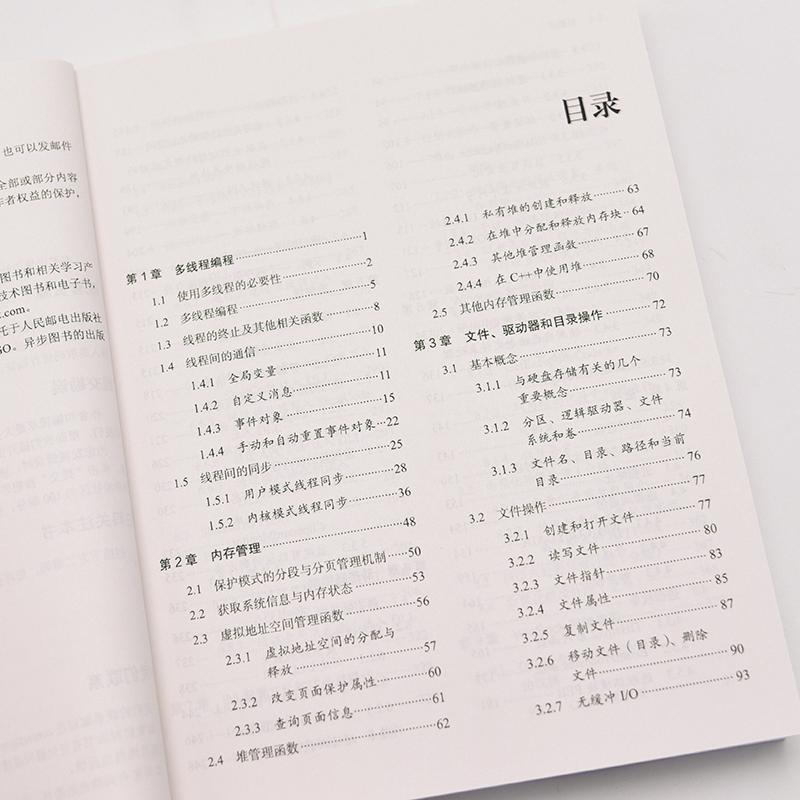 也可以发邮件
全部或部分内容
作者权益的保护，
图书和相关学习产
技术图书和电子书，
托于人民邮电出版社
异步图书的出版
目录
第1章 多线程编程 1
1.1 使用多线程的必要性 2
1.2 多线程编程 5
1.3 线程的终止及其他相关函数 8
1.4 线程间的通信 10
1.4.1 全局变量 11
1.4.2 自定义消息 11
1.4.3 事件对象 15
1.4.4 手动和自动重置事件对象 22
1.5 线程间的同步 25
1.5.1 用户模式线程同步 28
1.5.2 内核模式线程同步 36
第2章 内存管理 48
2.1 保护模式的分段与分页管理机制 50
2.2 获取系统信息与内存状态 53
2.3 虚拟地址空间管理函数 56
2.3.1 虚拟地址空间的分配与
释放 57
2.3.2 改变页面保护属性 60
2.3.3 查询页面信息 61
2.4 堆管理函数 62
2.4.1 私有堆的创建和释放 63
2.4.2 在堆中分配和释放内存块 64
2.4.3 其他堆管理函数 67
2.4.4 在 C++中使用堆 68
2.5 其他内存管理函数 70
第3章 文件、驱动器和目录操作 72
3.1 基本概念 73
3.1.1 与硬盘存储有关的几个
重要概念 73
3.1.2 分区、逻辑驱动器、文件
系统和卷 74
3.1.3 文件名、目录、路径和当前
目录 76
3.2 文件操作 77
3.2.1 创建和打开文件 77
3.2.2 读写文件 80
3.2.3 文件指针 83
3.2.4 文件属性 85
3.2.5 复制文件 87
3.2.6 移动文件（目录）、删除
文件 90
3.2.7 无缓冲 I/O 93